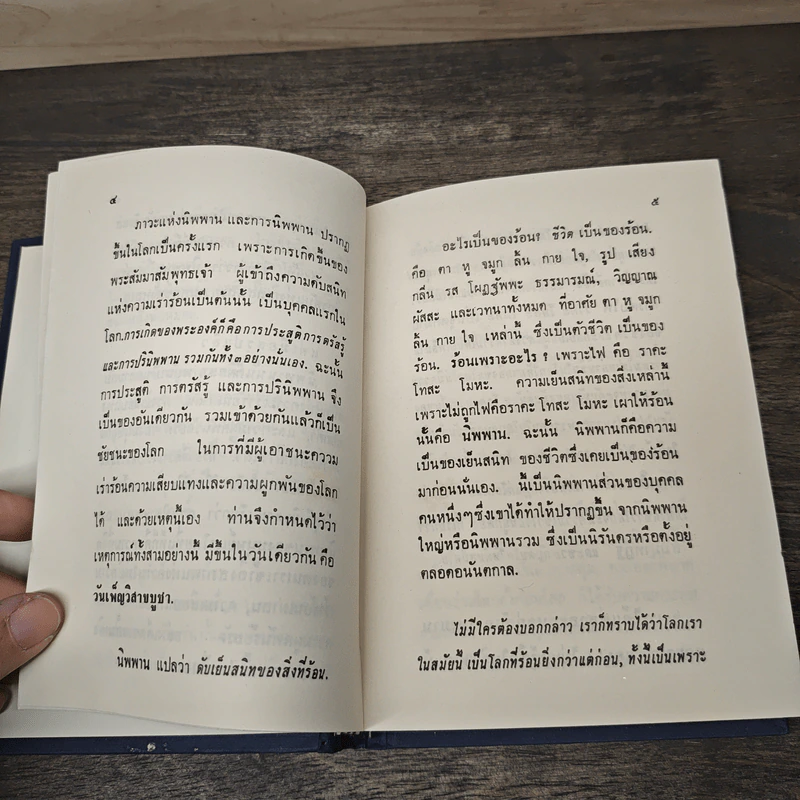 ๔
ภาวะแห่งนิพพาน และการนิพพาน ปรากฏ
ขึ้นในโลกเป็นครั้งแรก เพราะการเกิดขึ้นของ
พระสัมมาสัมพุทธเจ้า ผู้เข้าถึงความดับสนิท
แห่งความเร่าร้อนเป็นต้นนั้น เป็นบุคคลแรกใน
โลก.การเกิดของพระองค์ก็คือการประสูติการตรัสรู้
และการปรินิพพาน รวมกันทั้ง๓อย่างนั่นเอง. ฉะนั้น
การประสูติ การตรัสรู้ และการปรินิพพาน จึง
เป็นของอันเดียวกัน รวมเข้าด้วยกันแล้วก็เป็น
ชัยชนะของโลก ในการที่มีผู้เอาชนะความ
เร่าร้อนความเสียบแทงและความผูกพันของโลก
ได้ และด้วยเหตุนี้เอง ท่านจึงกำหนดไว้ว่า
เหตุการณ์ทั้งสามอย่างนี้ มีขึ้นในวันเดียวกัน คือ
วันเพ็ญวิสาขบูชา.
นิพพาน แปลว่า ดับเย็นสนิทของสิ่งที่ร้อน.
๕
อะไรเป็นของร้อน? ชีวิต เป็นของร้อน.
คือ ตา หู จมูก ลิ้น กาย ใจ, รูป เสียง
กลิ่น รส โผฏฐัพพะ ธรรมารมณ์, วิญญาณ
ผัสสะ และเวทนาทั้งหมด ที่อาศัย ตา หู จมูก
ลิ้น กาย ใจ เหล่านี้ ซึ่งเป็นตัวชีวิต เป็นของ
ร้อน. ร้อนเพราะอะไร ? เพราะไฟ คือ ราคะ
โทสะ โมหะ. ความเย็นสนิทของสิ่งเหล่านี้
เพราะไม่ถูกไฟคือราคะ โทสะ โมหะ เผาให้ร้อน
นั้นคือ นิพพาน. ฉะนั้น นิพพานก็คือความ
เป็นของเย็นสนิท ของชีวิตซึ่งเคยเป็นของร้อน
มาก่อนนั่นเอง. นี้เป็นนิพพานส่วนของบุคคล
คนหนึ่งๆซึ่งเขาได้ทำให้ปรากฏขึ้น จากนิพพาน
ใหญ่หรือนิพพานรวม ซึ่งเป็นนิรันดรหรือตั้งอยู่
ตลอดอนันตกาล.
ไม่มีใครต้องบอกกล่าว เราก็ทราบได้ว่าโลกเรา
ในสมัยนี้ เป็นโลกที่ร้อนยิ่งกว่าแต่ก่อน, ทั้งนี้เป็นเพราะ